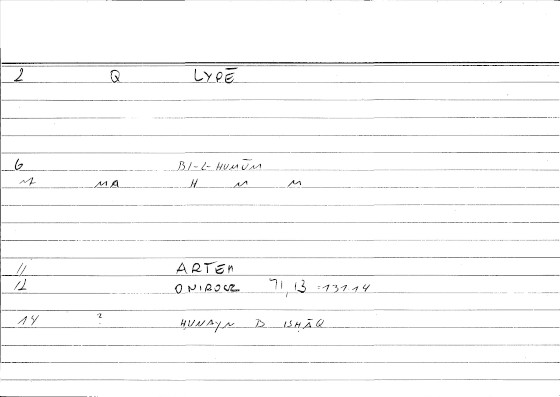 2 Q LYPĒ
6 BI-L-HUMŪM
MA H M M
11 ARTEM
12 ONIROCR 71,13 = 131 14
14 ? HUNAYN B ISHĀQ